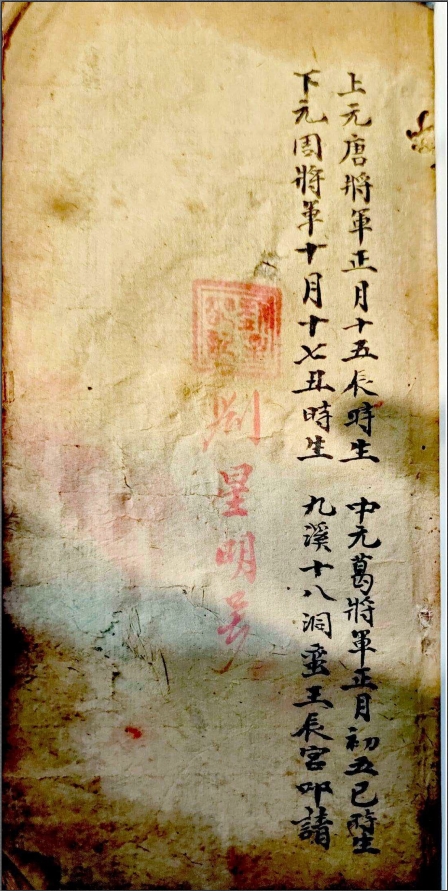 上元唐將軍正月十五辰時生
中元葛將軍正月初五巳時生
下元周將軍十月十七丑時生
九溪十八洞蛮王辰宮叩請
劉星明号